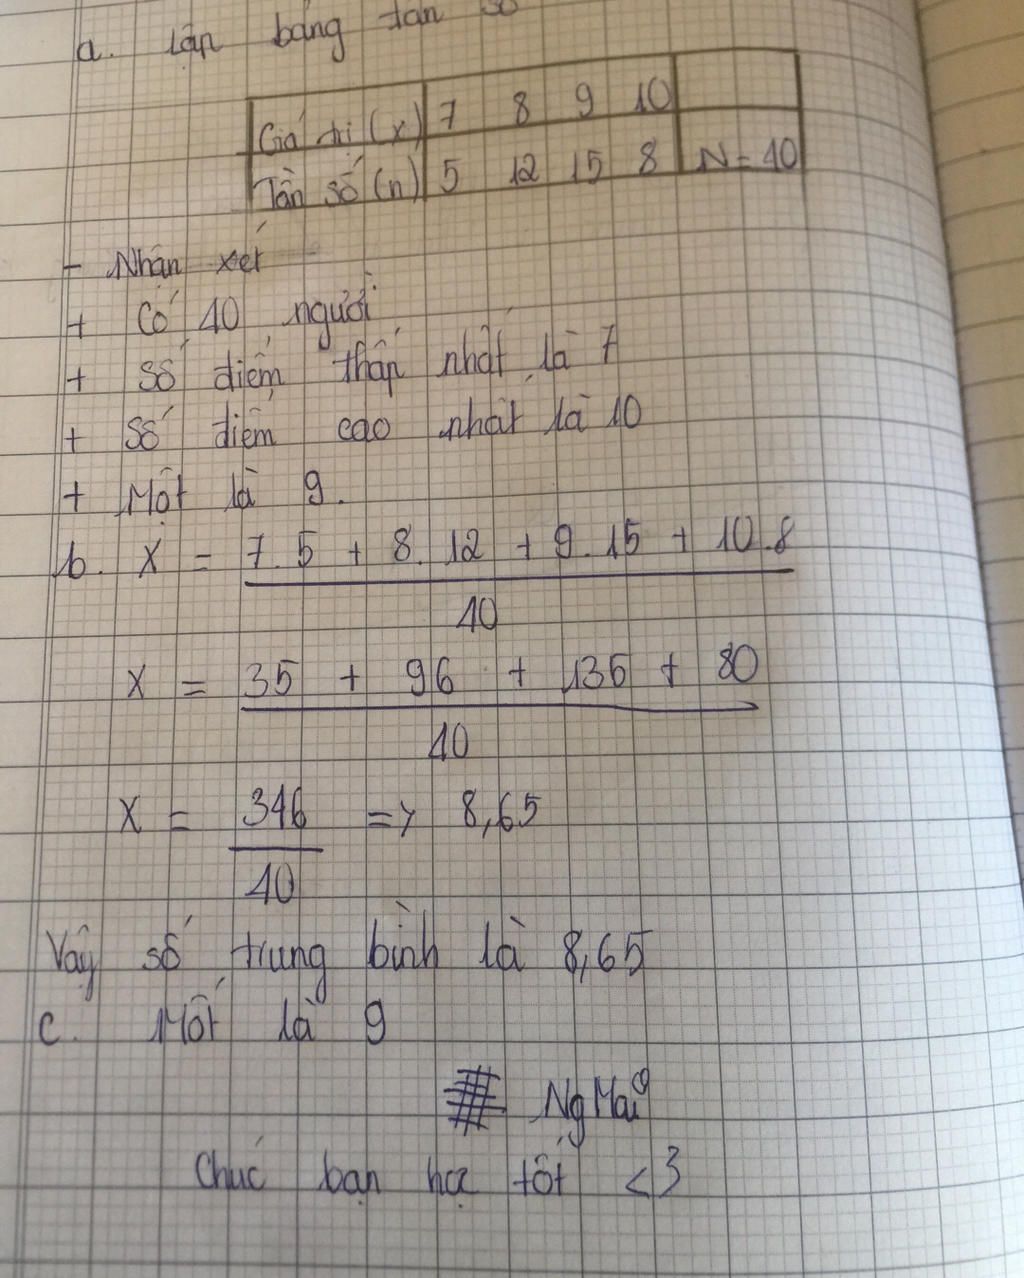 a. Lập bảng tần số
Giá trị (x) 7 8 9 10
Tần số (n) 5 12 15 8 N = 40
- Nhận xét
+ Có 40 người
+ Số điểm thấp nhất là 7
+ Số điểm cao nhất là 10
+ Mốt là 9.
b. X = 7.5 + 8.12 + 9.15 + 10.8
40
X = 35 + 96 + 135 + 80
40
X = 346 => 8,65
40
Vậy số trung bình là 8,65
c. Mốt là 9
# NgMai
Chúc bạn học tốt <3